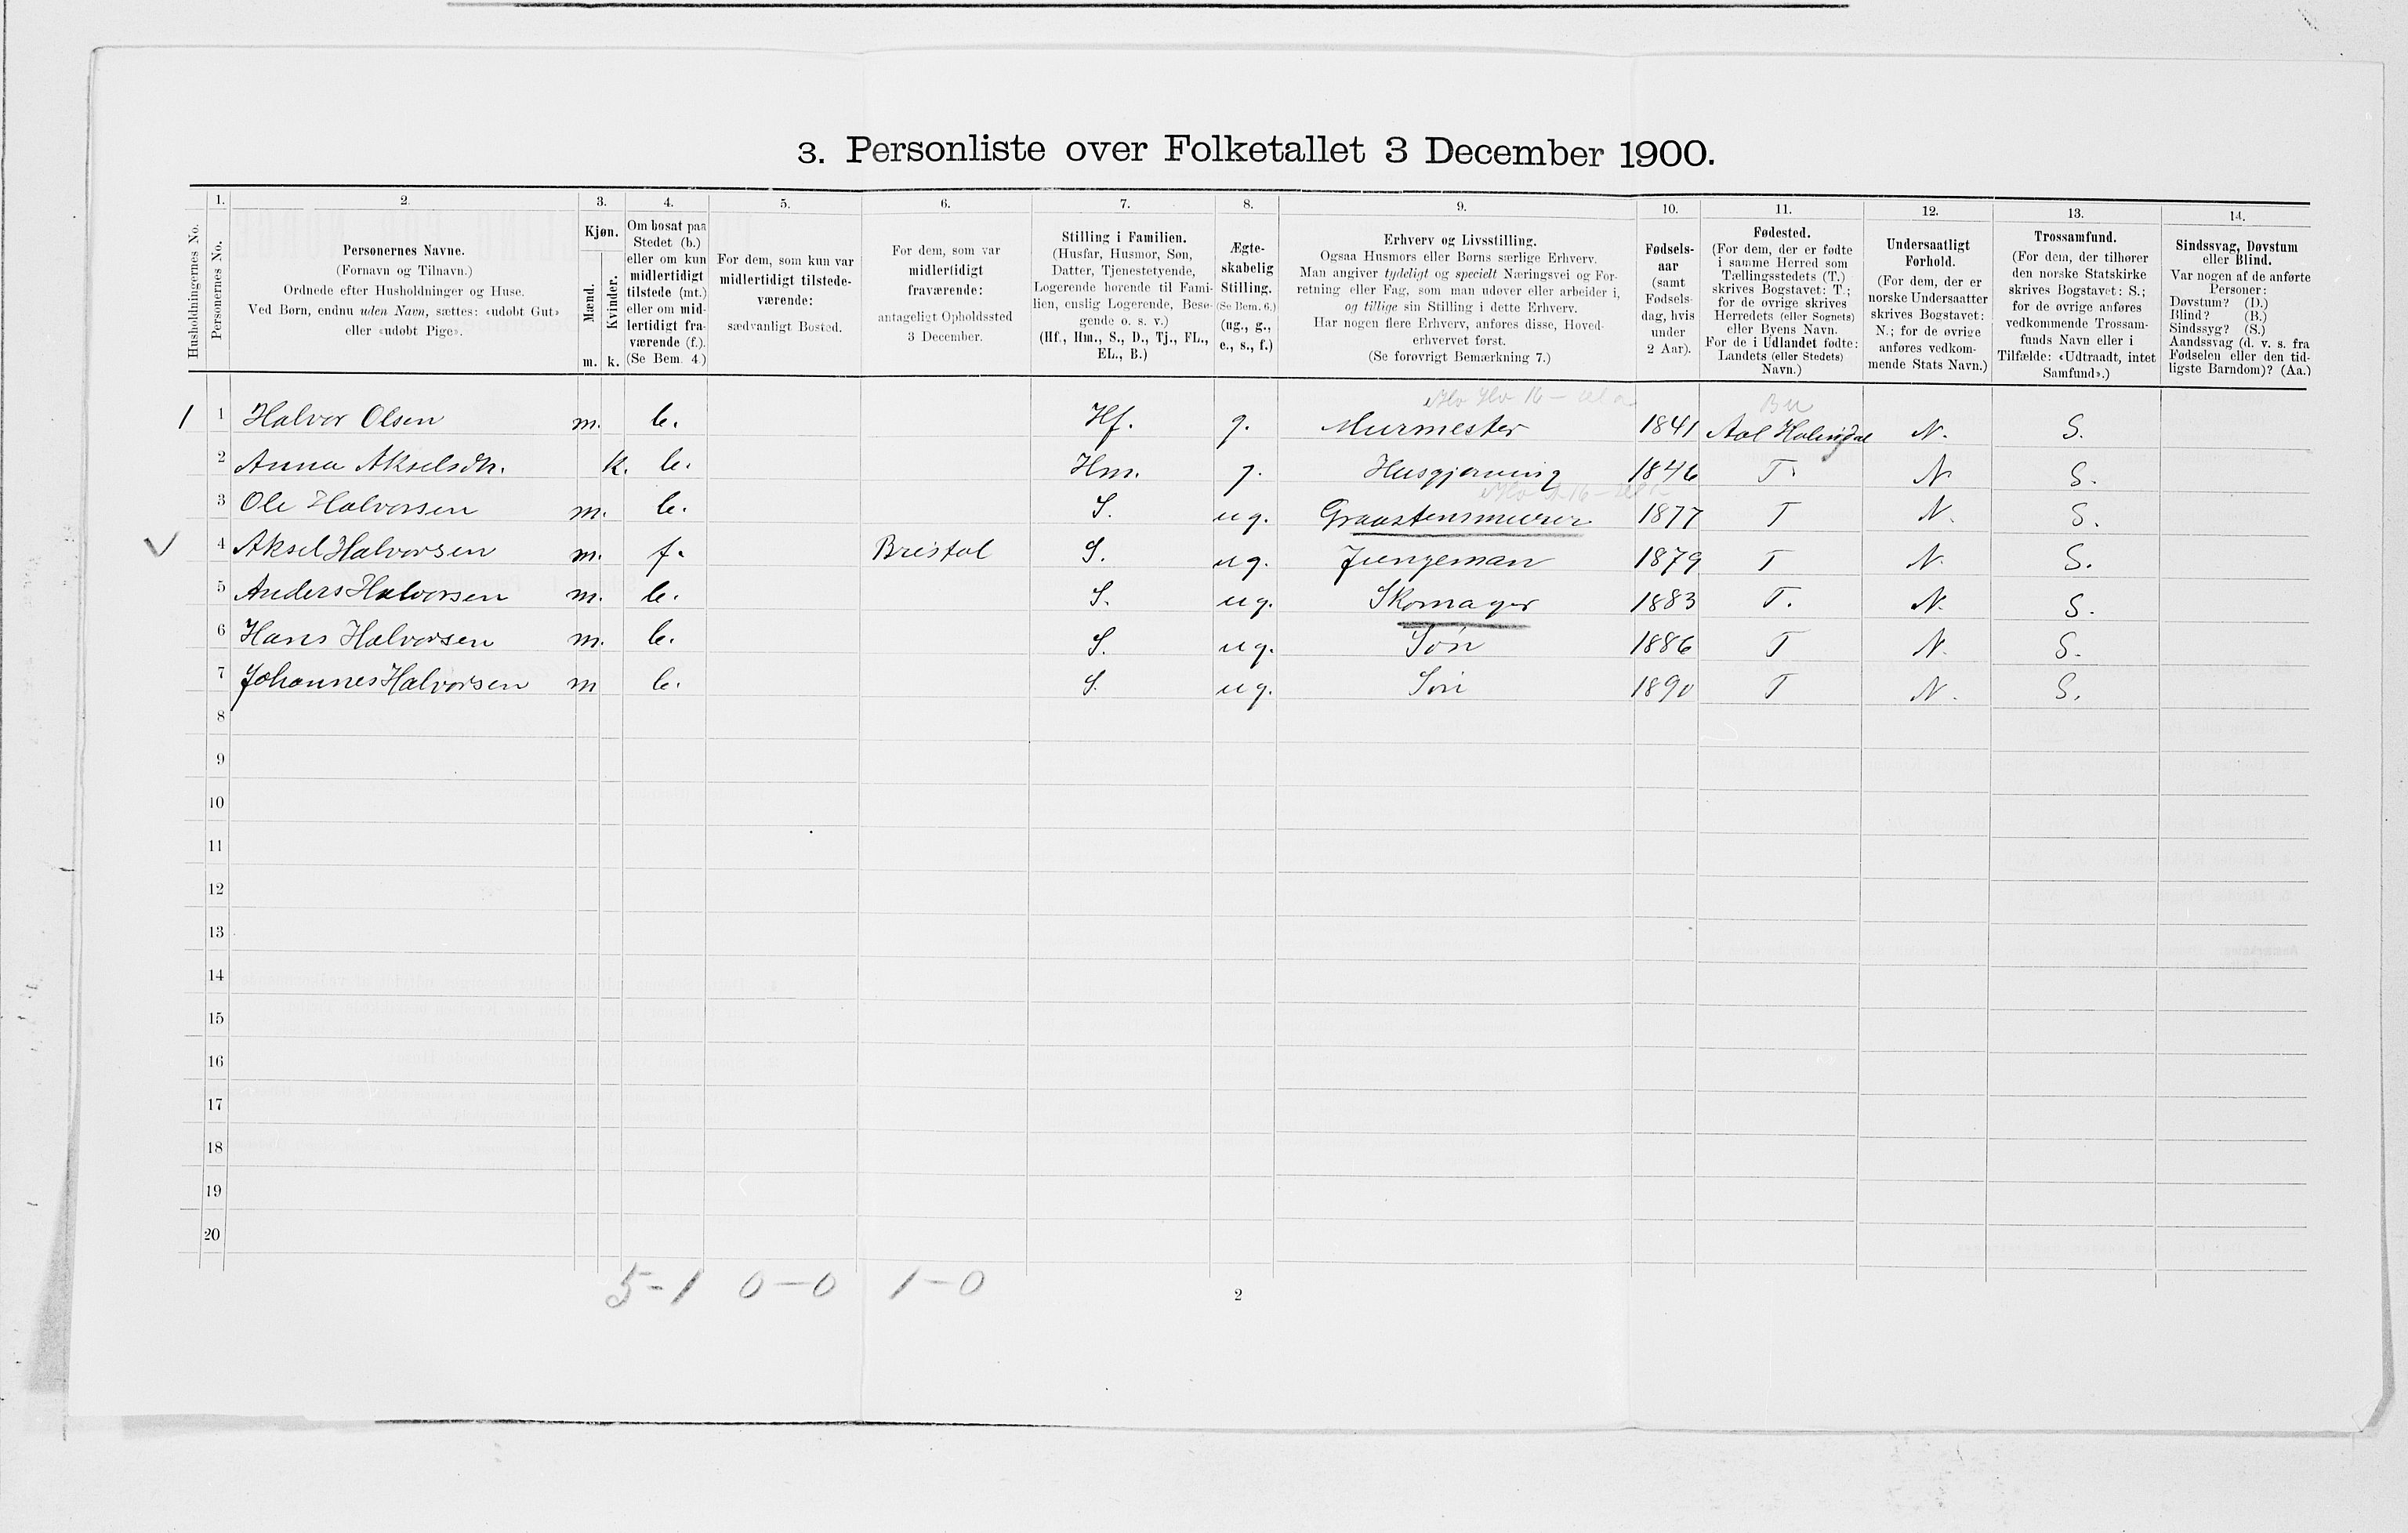 3. Personliste over Folketallet 3 December 1900.
1. 2. 3. 4. 5. 6. 7. 8. 9. 10. 11. 12. 13. 14.
Husholdningernes No.
Personernes No.
Personernes Navne.
(Fornavn og Tilnavn.)
Ordnede efter Husholdninger og Huse.
Ved Børn, endnu uden Navn, sættes: «udøbt Gut»
eller «udøbt Pige».
Kjøn.
Mænd.
Kvinder.
m. k.
Om bosat paa
Stedet (b.)
eller om kun
midlertidigt
tilstede (mt.)
eller om mid-
lertidigt fra-
værende (f.).
(Se Bem. 4.)
For dem, som kun var
midlertidigt tilstede-
værende:
sædvanligt Bosted.
For dem, som var
midlertidigt
fraværende:
antageligt Opholdssted
3 December.
Stilling i Familien.
(Husfar, Husmor, Søn,
Datter, Tjenestetyende,
Logerende hørende til Fami-
lien, enslig Logerende, Besø-
gende o. s. v.)
(Hf., Hm., S., D., Tj., FL.,
EL., B.)
Ægte-
skabelig
Stilling.
(Se Bem. 6.)
(ug., g.,
e., s., f.)
Erhverv og Livsstilling.
Ogsaa Husmors eller Børns særlige Erhverv.
Man angiver tydeligt og specielt Næringsvei og For-
retning eller Fag, som man udøver eller arbeider i,
og tillige sin Stilling i dette Erhverv.
Har nogen flere Erhverv, anføres disse, Hoved-
erhvervet først.
(Se forøvrigt Bemærkning 7.)
Fødsels-
aar
(samt
Fødsels-
dag, hvis
under
2 Aar).
Fødested.
(For dem, der er fødte
i samme Herred som
Tællingsstedets (T.)
skrives Bogstavet: T.;
for de øvrige skrives
Herredets (eller Sognets)
eller Byens Navn.
For de i Udlandet fødte:
Landets (eller Stedets)
Navn.)
Undersaatligt
Forhold.
(For dem, der er
norske Undersaatter
skrives Bogstavet:
N.; for de øvrige
anføres vedkom-
mende Stats Navn.)
Trossamfund.
(For dem, der tilhører
den norske Statskirke
skrives Bogstavet: S.;
for de øvrige anføres
vedkommende Trossam-
funds Navn eller i
Tilfælde: «Udtraadt, intet
Samfund».)
Sindssvag, Døvstum
eller Blind.
Var nogen af de anførte
Personer:
Døvstum? (D.)
Blind? (B.)
Sindssyg? (S.)
Aandssvag (d. v. s. fra
Fødselen eller den tid-
ligste Barndom)? (Aa.)
Bu
1 1 Halvor Olsen m. b. Hf. g. Murmester 1841 Aal Halingdal N. S.
2 Anna Akselsdtr. k. b. Hm. g. Husgjerning 1846 T. N S.
3 Ole Halvorsen m. b. S. ug. Graastensmurer 1877 T N. S.
4 Aksel Halvorsen m. f. Bristol S. ug. Jungeman 1879 T N. S.
5 Anders Halvorsen m. b. S. ug. Skomager 1883 T. N. S.
6 Hans Halvorsen m. b. S. ug. Søn 1886 T N. S.
7 Johannes Halvorsen m b. S. ug. Søn 1890 T N. S.
8
9
10
11
12
13
14
15
16
17
18
19
20
5-1 0-0 1-0
2